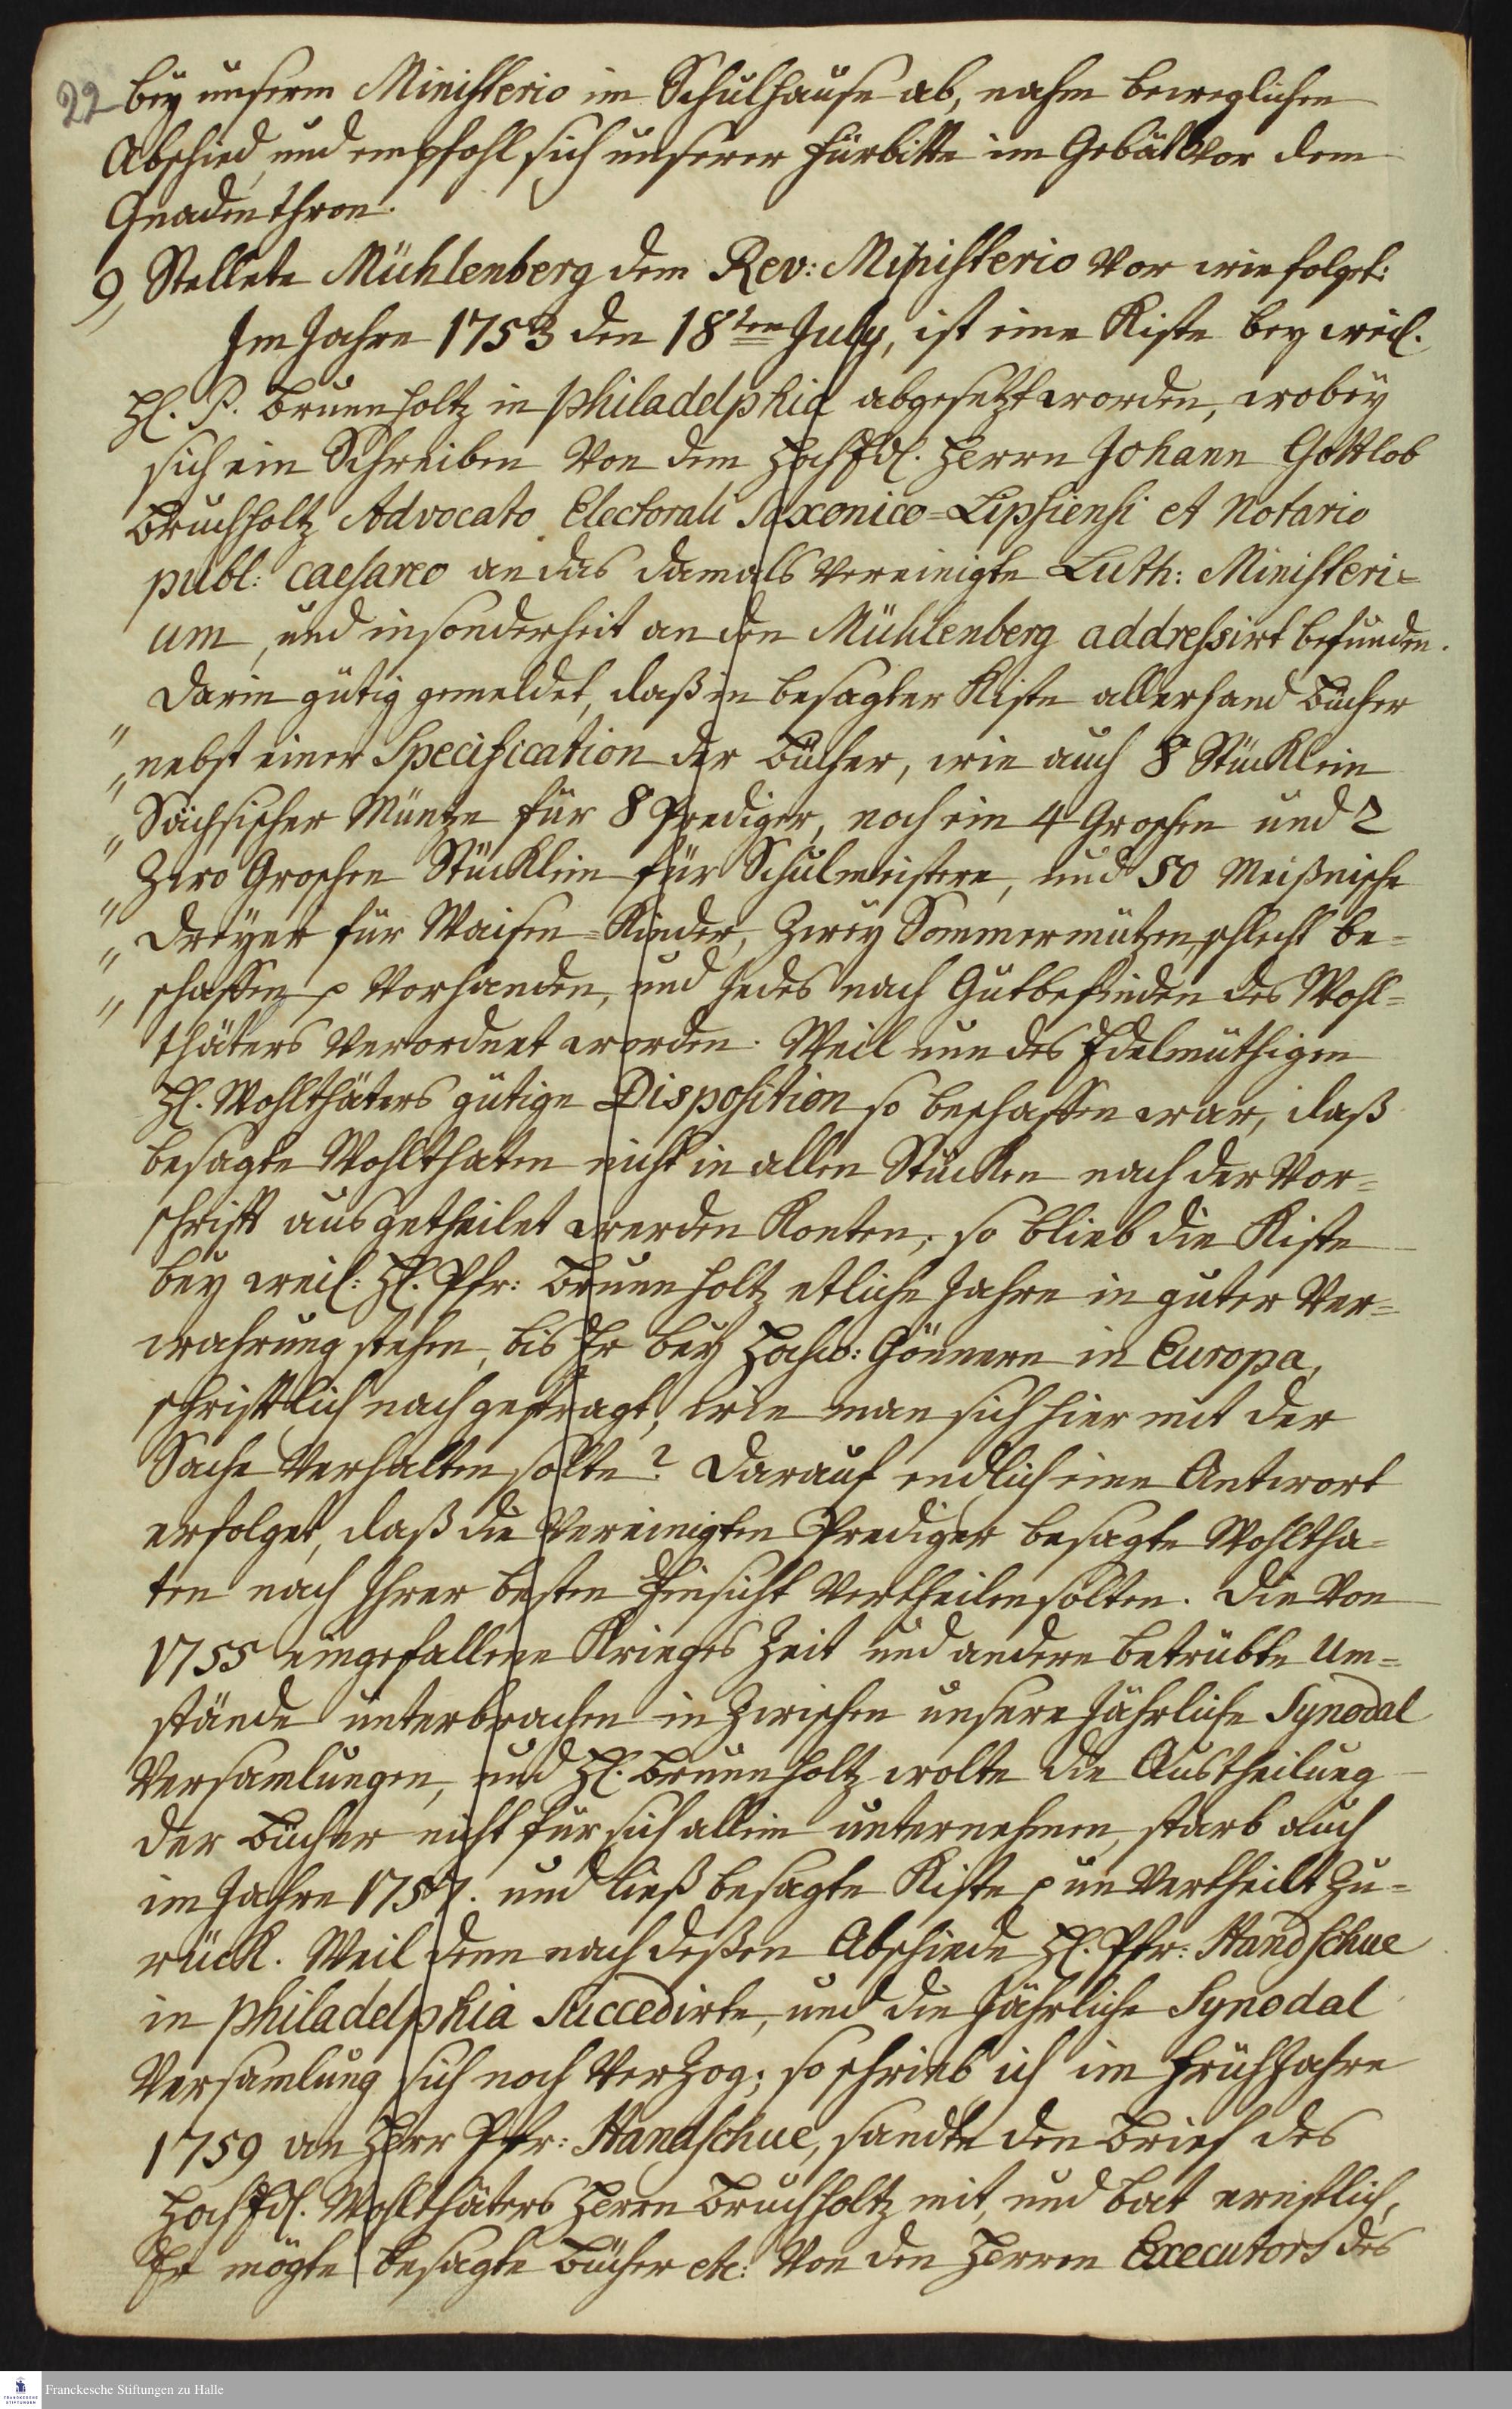 22 bey unserm Ministerio im Schulhause ab, nahm beweglichen
Abschied, und empfohl sich unserer Fürbitte im Gebät vor dem
Gnadenthron.
9, Stellete Mühlenberg dem Rev: Ministerio vor wie folget:
Im Jahre 1753 den 18ten July, ist eine Kiste bey weil.
H. P. Brunnholtz in philadelphia abgesetzt worden, wobey
sich ein Schreiben von dem HochEdl. Herrn Johann Gottlob
Bruchholtz Advocato Electorali Saxonico=Lipsiensi et Notario
publ: caesareo an das damals vereinigte Luth: Ministeri=
um, und insonderheit an den Mühlenberg addressirt befunden.
Darin gütig gemeldet, daß in besagter Kiste allerhand Bücher
" nebst einer Specification der Bücher, wie auch 8 Stücklein
" Sächsischer Müntze für 8 Prediger, noch ein 4 Groschen und 2
" Zwo Groschen Stücklein für Schulmeistere, und 50 Meißnische
" Dreyer für Waisen=Kinder, Zwey Sommermützen, schlecht be=
" schaffen p vorhanden, und Jedes nach Gutbefinden des Wohl=
" thäters verordnet worden. Weil nun des Edelmüthigen
H. Wohlthäters gütige Disposition so beschaffen war, daß
besagte Wohlthaten nicht in allen Stücken nach der Vor=
schrift ausgetheilet werden konten; so blieb die Kiste
bey weil: H. Pfr: Brunnholtz etliche Jahre in guter Ver=
wahrung stehen, bis Er bey Hochw: Gönnern in Europa,
schriftlich nachgefragt, wie man sich hier mit der
Sache verhalten solte? Darauf endlich eine Antwort
erfolget, daß die vereinigten Prediger besagte Wohltha=
ten nach Ihrer besten Einsicht vertheilen solten. Die von
1755 eingefallene Krieges Zeit und andere betrübte Um=
stände unterbrachen in Zwischen unsere Jährliche Synodal
Versamlungen, und H. Brunnholtz wolte die Austheilung
der Bücher nicht für sich allein unternehmen, starb auch
im Jahre 1757. und ließ besagte Kiste p un vertheilt Zu=
rück. Weil denn nach deßen Abschiede H. Pfr: Handschue
in philadelphia Succedirte, und die Jährliche Synodal
Versamlung sich noch verzog; so schrieb ich im Frühjahre
1759 an Herr Pfr: Handschue, sandte den Brief des
HochEdl. Wohlthäters Herrn Bruchholtz mit, und bat ernstlich,
Er mögte besagte Bücher etc: von den Herren Executors des
Franckesche Stiftungen zu Halle